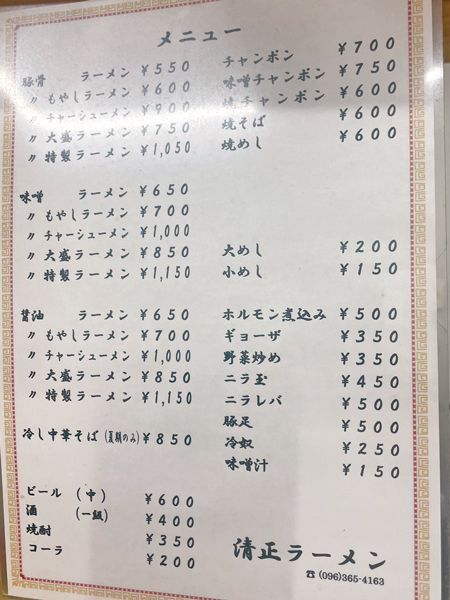 メニュー
豚骨 ラーメン ¥550
〃 もやしラーメン ¥600
〃 チャーシューメン ¥900
〃 大盛ラーメン ¥750
〃 特製ラーメン ¥1,050
味噌 ラーメン ¥650
〃 もやしラーメン ¥700
〃 チャーシューメン ¥1,000
〃 大盛ラーメン ¥850
〃 特製ラーメン ¥1,150
醤油 ラーメン ¥650
〃 もやしラーメン ¥700
〃 チャーシューメン ¥1,000
〃 大盛ラーメン ¥850
〃 特製ラーメン ¥1,150
冷し中華そば(夏期のみ) ¥850
ビール (中) ¥600
酒 (一級) ¥400
焼酎 ¥350
コーラ ¥200
チャンポン ¥700
味噌チャンポン ¥750
焼チャンポン ¥600
焼そば ¥600
焼めし ¥600
大めし ¥200
小めし ¥150
ホルモン煮込み ¥500
ギョーザ ¥350
野菜炒め ¥350
ニラ玉 ¥450
ニラレバ ¥500
豚足 ¥500
冷奴 ¥250
味噌汁 ¥150
清正ラーメン
☎(096)365-4163